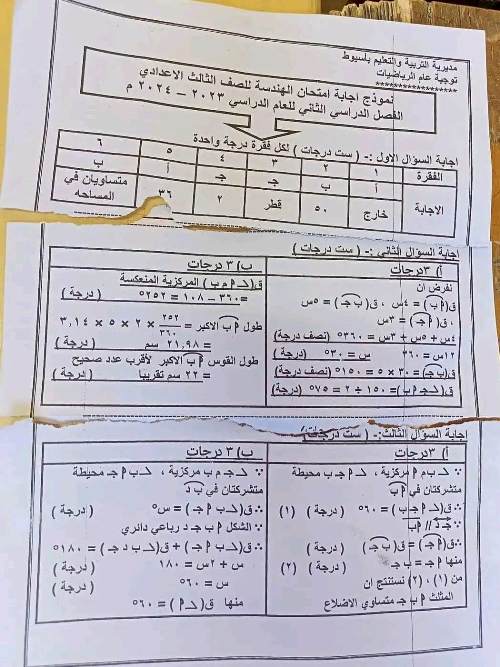 مديرية التربية والتعليم بأسيوط
توجية عام الرياضيات
*****************
نموذج اجابة امتحان الهندسة للصف الثالث الاعدادي
الفصل الدراسي الثاني للعام الدراسي ٢٠٢٣ – ٢٠٢٤ م
اجابة السؤال الاول :- ( ست درجات ) لكل فقرة درجة واحدة
الفقرة ١ ٢ ٣ ٤ ٥ ٦
الاجابة أ ب جـ جـ أ ب
خارج ٥٠ قطر ٢ ٣٦ متساويان في المساحه
اجابة السؤال الثاني :- ( ست درجات )
أ) ٣ درجات
نفرض ان
ق(أ ب) = ٤س ، ق(ب جـ) = ٥س
، ق(أ جـ) = ٣س
٤س + ٥س + ٣س = ٣٦٠° (نصف درجة)
١٢س = ٣٦٠ س = ٣٠° (درجة)
ق(ب جـ) = ٣٠ × ٥ = ١٥٠° (نصف درجة)
ق(∠جـ أ ب) = ١٥٠ ÷ ٢ = ٧٥° (درجة)
ب) ٣ درجات
ق(∠أ م ب) المركزية المنعكسة
= ٣٦٠ – ١٠٨ = ٢٥٢° (درجة)
طول أ ب الاكبر = ٢٥٢/٣٦٠ × ٢ × ٥ × ٣,١٤
= ٢١,٩٨ سم (درجة)
طول القوس أ ب الاكبر لأقرب عدد صحيح
= ٢٢ سم تقريبا (درجة)
اجابة السؤال الثالث:- ( ست درجات )
أ) ٣درجات
∵ ∠ب م أ مركزية ، ∠أ جـ ب محيطة
متشركتان في أ ب
∴ق(∠أ جـ ب) = ٦٠° (درجة) (١)
∵ جـ د // أ ب
∴ق(أ جـ) = ق(ب جـ) (درجة)
منها أ جـ = ب جـ (درجة) (٢)
من (١) ، (٢) نستنتج ان
المثلث أ ب جـ متساوي الاضلاع
ب) ٣ درجات
∵ ∠جـ م ب مركزية ، ∠ب أ جـ محيطة
متشركتان في ب د
∴ق(∠ب أ جـ) = س° (درجة)
∵ الشكل أ ب جـ د رباعي دائري
∴ق(∠ب أ جـ) + ق(∠ب د جـ) = ١٨٠°
س + ٢س = ١٨٠ (درجة)
س = ٦٠° (درجة)
منها ق(∠أ) = ٦٠°